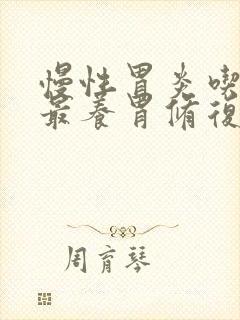 慢性胃炎喫
最養胃脩復
周育琴